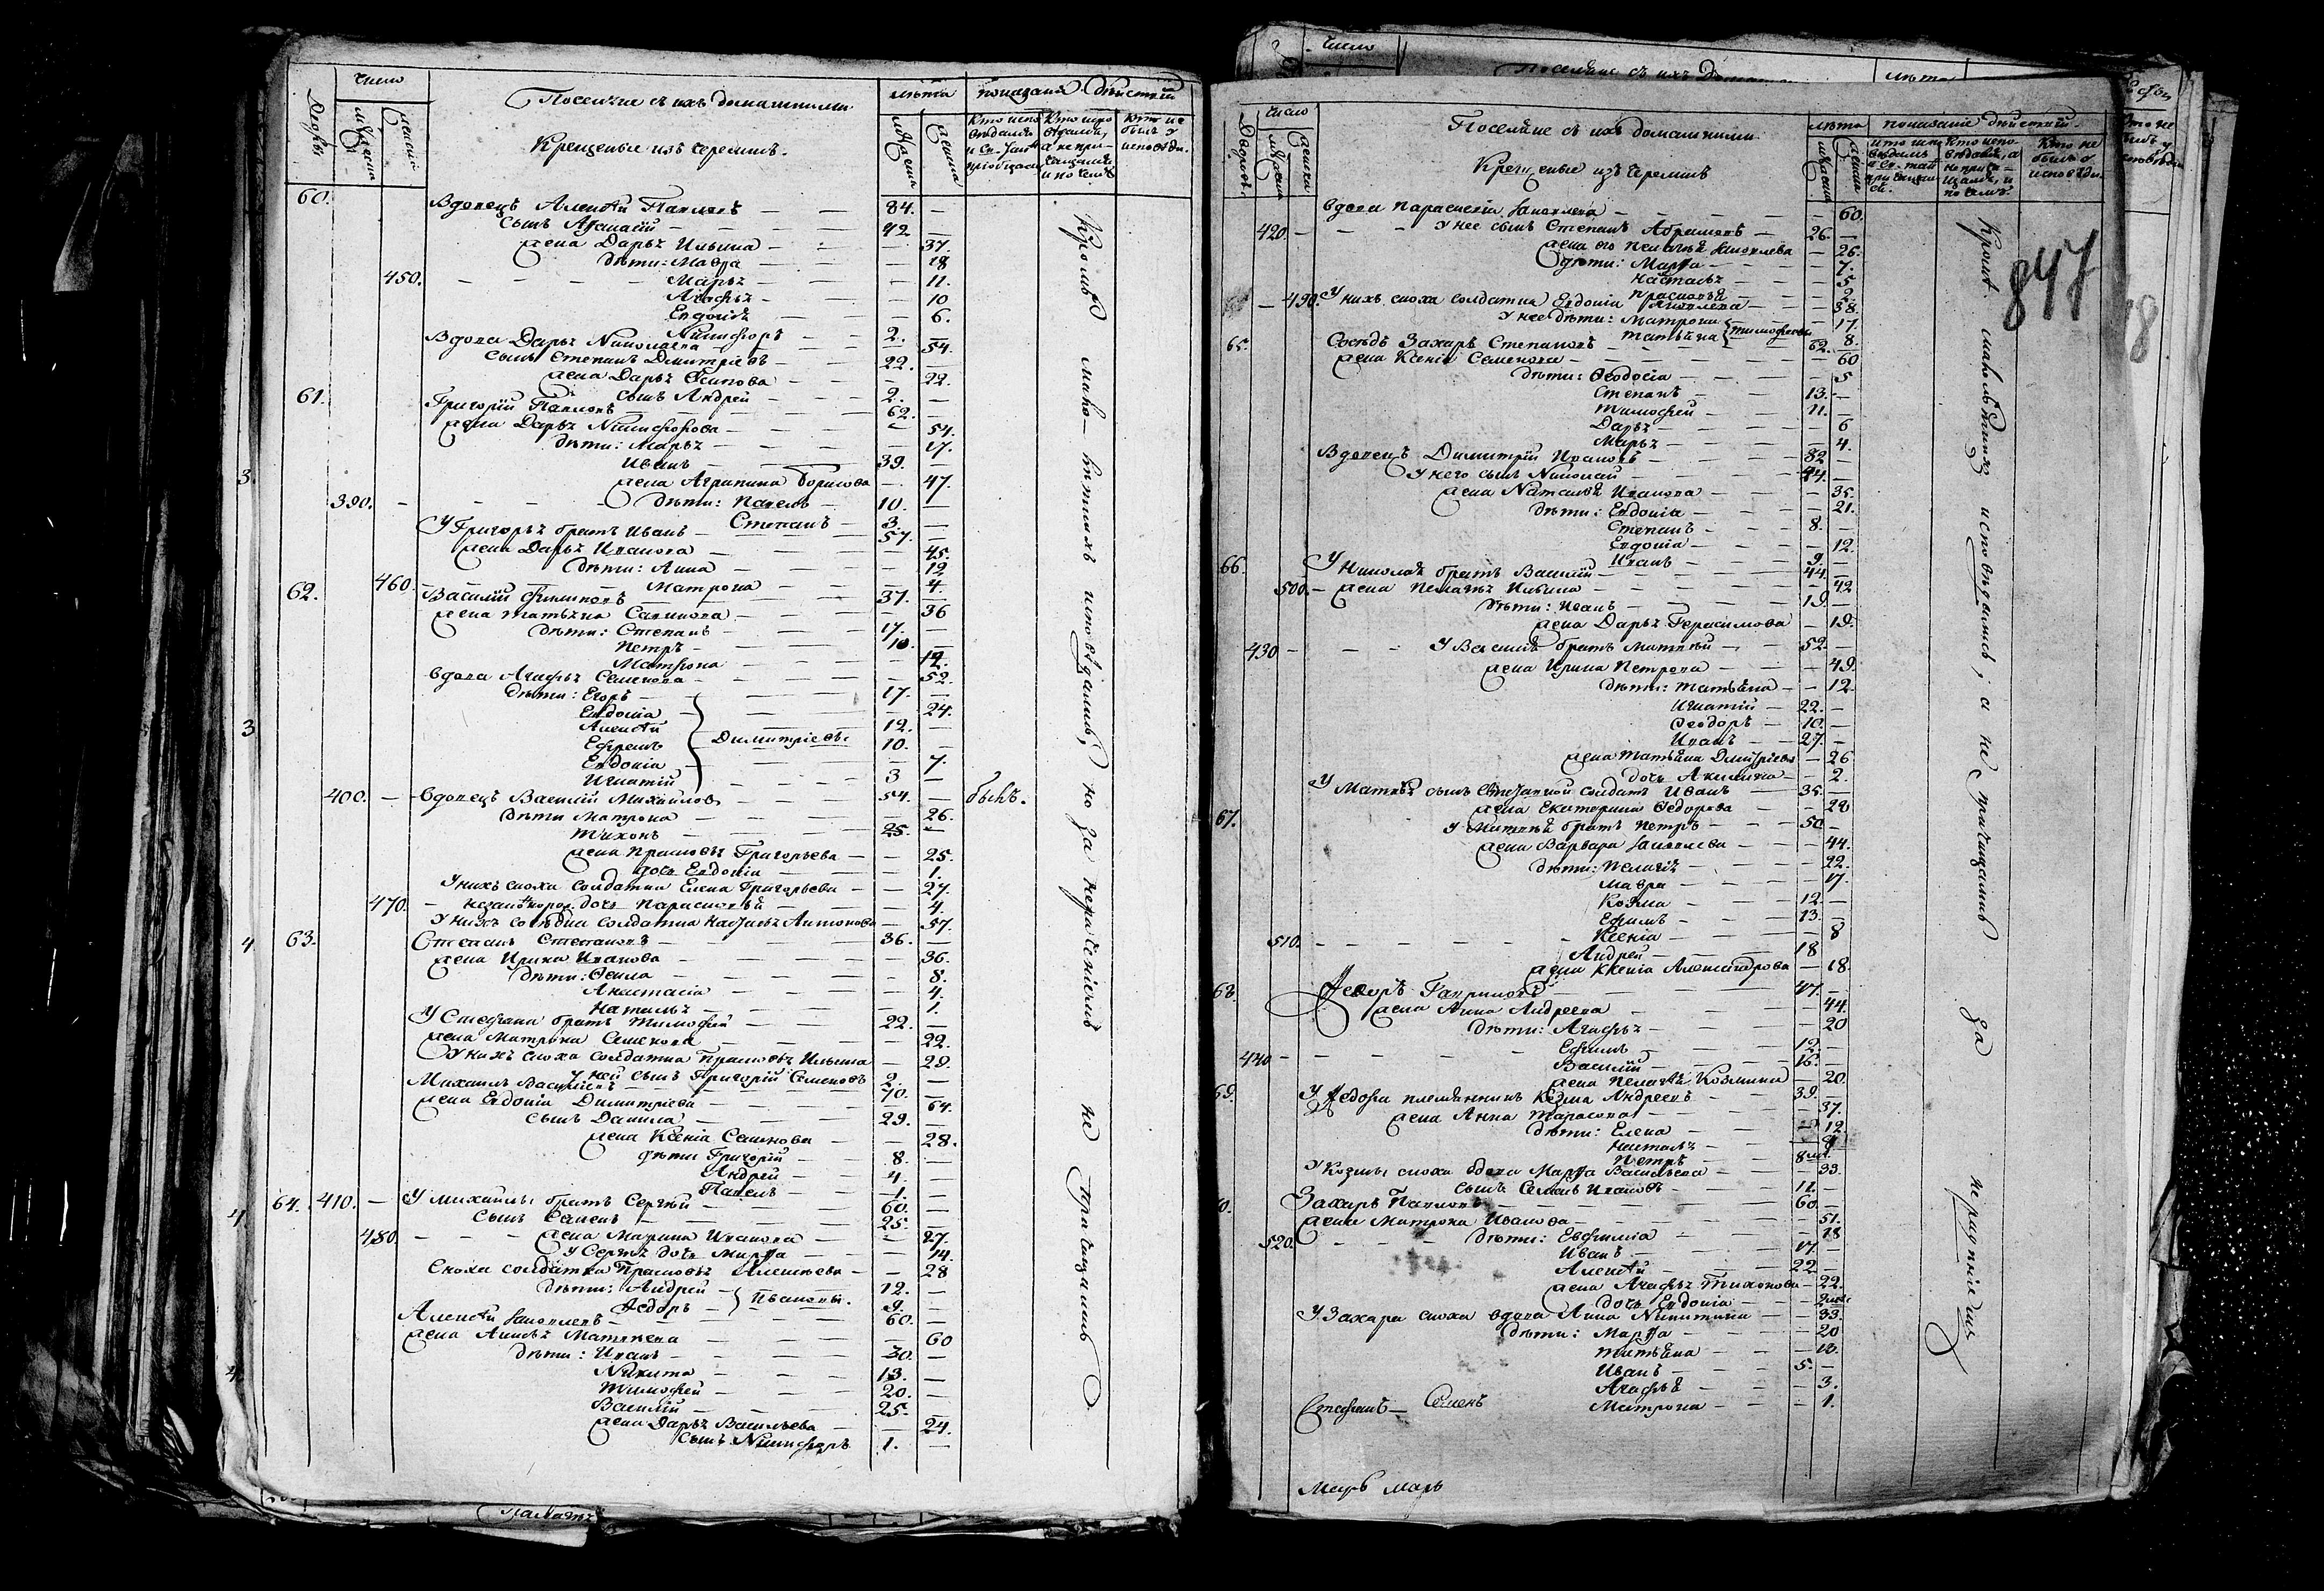 Число
Дворы
мужска
женска
Поселяне съ ихъ домашними
Крещеные изъ черемисъ.
лѣта
мужска
женска
показаніе дѣйствій
Кто не былъ у исповѣди.
60.
Вдовецъ Алексѣй Павловъ — — 84. —
Сынъ Аѳанасій — — 42 —
жена Дарья Ильина — — 37.
дѣти: Мавра — — 18
450. — Марья — — 11.
Агафья — — 10
Евдокія — — 6.
Никифоръ — 2. —
Вдова Дарья Николаева — — 54.
сынъ Степанъ Дмитріевъ — 22. —
жена Дарья Осипова — — 22.
сынъ Андрей — 2. —
61. Григорій Павловъ — 62. —
жена Дарья Никифорова — — 54.
дѣти: Марья — — 17.
Иванъ — 39. —
жена Агрипина Борисова — 47.
390. — дѣти: Павелъ — 10. —
Степанъ — 3. —
У Григорья братъ Иванъ — 57. —
жена Дарья Иванова — — 45.
дѣти: Анна — — 12
460. Матрона — — 4.
62. Василій Филиповъ — 37. —
жена Татьяна — — 36
дѣти: Степанъ — 17. —
Петръ — 10. —
Матрона — — 12.
вдова Агафья Семенова — — 52.
дѣти: Егоръ — 17. —
Евдокія — — 24.
Алексѣй — 12. —
Ефремъ — Димитріевы. 10. —
Евдокія — — 7.
Игнатій — 3 —
400. — вдовецъ Василій Михайловъ 54. — былъ.
дѣти Матрона — — 26.
Тихонъ — 25. —
жена Прасковья Григорьева — — 25.
дочь Евдокія — — 1.
У нихъ сноха солдатка Елена Григорьева — — 27.
470. — незаконорож. дочь Парасковья — — 4.
У нихъ сосѣдка солдатка Наталья Антонова — 57.
63. Степанъ Степановъ — 36. —
жена Ирина Иванова — — 36.
дѣти: Ѳекла — — 8.
Анастасія — — 4.
Наталья — — 1.
У Стефана братъ Тимофей — 22. —
жена Матрона Семенова — — 22.
У нихъ сноха солдатка Прасковья Ильина — 29.
У ней сынъ Григорій Семеновъ 2. —
Михаилъ Васильевъ — 70. —
жена Евдокія Димитріева — — 64.
сынъ Данила — 29. —
жена Ксенія — — 28.
дѣти Григорій — 8. —
Андрей — 4. —
Павелъ — 1. —
64. 410. — У Михайлы братъ Сергѣй — 60. —
сынъ Семенъ — 25. —
480. — жена Марина Иванова — — 27.
У Сергѣя дочь Марѳа — — 14.
Сноха солдатка Прасковья Алексѣева — — 28
дѣти: Андрей — 12. —
Ѳедоръ — Ивановы. 9. —
Алексѣй Яковлевъ — 60. —
жена Анисья Матвѣева — — 60
дѣти: Иванъ — 30. —
Никита — 13. —
Тимофей — 20. —
Василій — 25. —
жена Дарья Васильева — — 24.
сынъ Никифоръ 1. —
Кромѣ малолѣтнихъ исповѣдались, но за нераченіемъ не причащались
Число
Дворовъ.
мужска
женска
Поселяне съ ихъ домашними.
Крещеные изъ черемисъ
лѣта
мужска
женска
показаніе дѣйствій.
Кто не былъ у исповѣди.
847
вдова Параскевія Яковлева — — 60.
420. — У нее сынъ Степанъ Абрамовъ — 26. —
жена его Пелагѣя Яковлева — 26.
дѣти: Марѳа — — 7.
Наталья — — 5
Прасковья — — 2.
490. У нихъ сноха солдатка Евдокія Яковлева — — 38.
У нее дѣти: Матрона — — 17.
Татьяна Тимофеевы — 8.
65. Сосѣдъ Захаръ Степановъ — 62. —
жена Ксенія Семенова — — 60
дѣти: Ѳеодосія — — 5
Степанъ — 13. —
Тимофей — 11. —
Дарья — — 6
Марья — — 4.
Вдовецъ Димитрій Ивановъ — 82 —
У него сынъ Николай — 44. —
жена Наталья Иванова — — 35.
дѣти: Евдокія — — 21.
Степанъ — 8. —
Евдокія — — 12.
Иванъ — 9. —
66. У Николая братъ Василій — 44. —
500. — жена Пелагѣя Ильина — — 42
дѣти: Иванъ — 19. —
жена Дарья Герасимова — 19.
430 — У Василья братъ Матвѣй — 52. —
жена Ирина Петрова — — 49.
дѣти: Татьяна — — 12.
Игнатій — 22. —
Ѳеодоръ — 10. —
Иванъ — 27. —
жена Татьяна Дмитріева — 26
дочь Акилина — — 2.
У Матвѣя сынъ солдатъ Иванъ — 35. —
жена Екатерина Ѳедорова — — 28
67. У Матвѣя братъ Петръ — 50. —
жена Варвара Яковлева — — 44.
дѣти: Пелагія — — 22.
Мавра — — 17.
Козма — 12. —
Ефимъ — 13. —
510. — Ксенія — — 8
Андрей — 18
жена Ксенія Александрова — 18.
68. Ѳедоръ Гавриловъ — 47. —
жена Анна Андреева — — 44.
дѣти: Агафья — — 20
Ефимъ — 12. —
440 — Василій — 16. —
жена Пелагѣя Козмина — 20.
69. У Ѳедора племянникъ Козма Андреевъ — 39. —
жена Анна Тарасова — — 37.
дѣти: Елена — — 12.
Наталья —
Петръ —
У Козмы сноха вдова Марѳа Васильева — — 33.
сынъ Семенъ Ивановъ — 11. —
Захаръ Павловъ — 60. —
жена Матрона Иванова — — 51.
520. — дѣти: Евфимія — — 18
Иванъ — 17. —
Алексѣй — 22 —
жена Агафья Тихонова — 22.
дочь Евдокія —
У Захара сноха вдова Анна Никитина — — 33.
дѣти: Марѳа — — 20
Татьяна — — 13.
Иванъ — 5. —
Агафья — — 3.
Матрона — — 1.
Стефанъ — Семенъ
Марь Марь
Кромѣ малолѣтнихъ исповѣдались, а не причащались за нерадѣніемъ